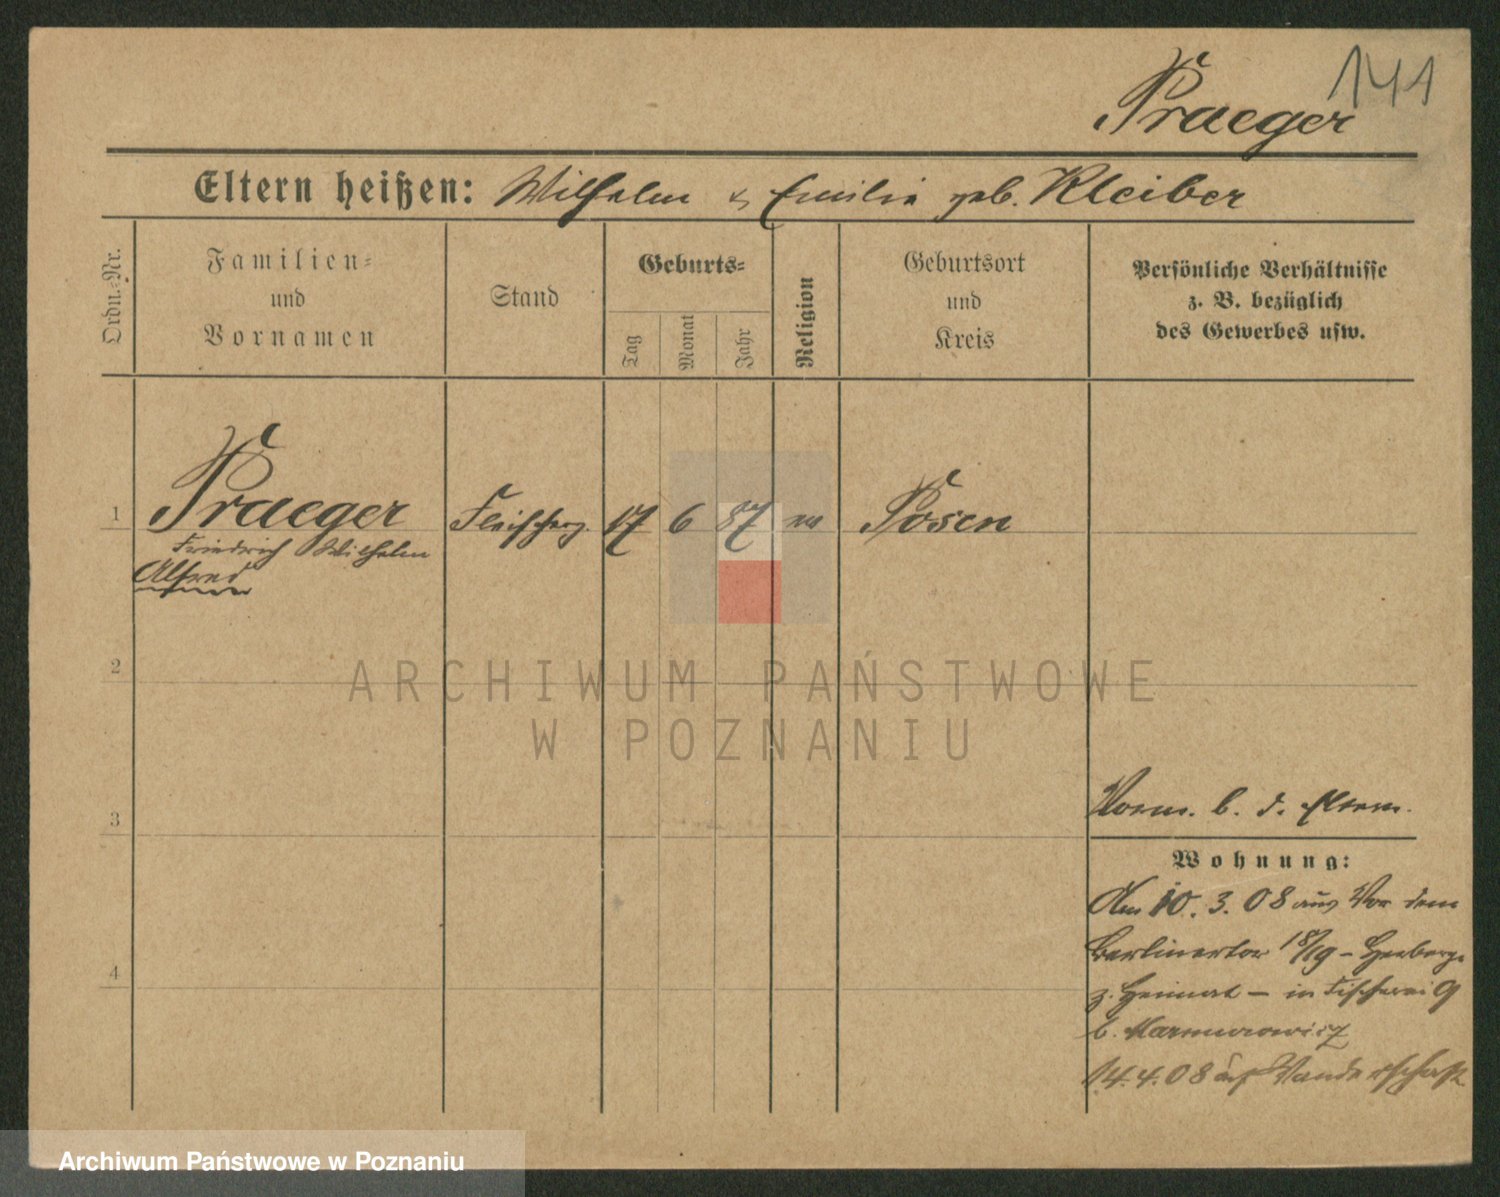 141
Praeger
Eltern heißen: Wilhelm & Emilie geb. Kleiber
Ordn.-Nr.
Familien-
und
Vornamen
Stand
Geburts-
Tag
Monat
Jahr
Religion
Geburtsort
und
Kreis
Persönliche Verhältnisse
z. B. bezüglich
des Gewerbes usw.
1 Praeger Fleischerg. 17 6 87 Posen
Friedrich Wilhelm
Alfred
2
ARCHIWUM PAŃSTWOWE
W POZNANIU
3
Vorm. b. d. Eltern.
Wohnung:
Am 10. 3. 08 aus Vor dem
Berlinertor 18/19 – Herberge
4
z. Heimat – in Fischerei 9
b.
14.4.08 auf Wanderschaft
Archiwum Państwowe w Poznaniu